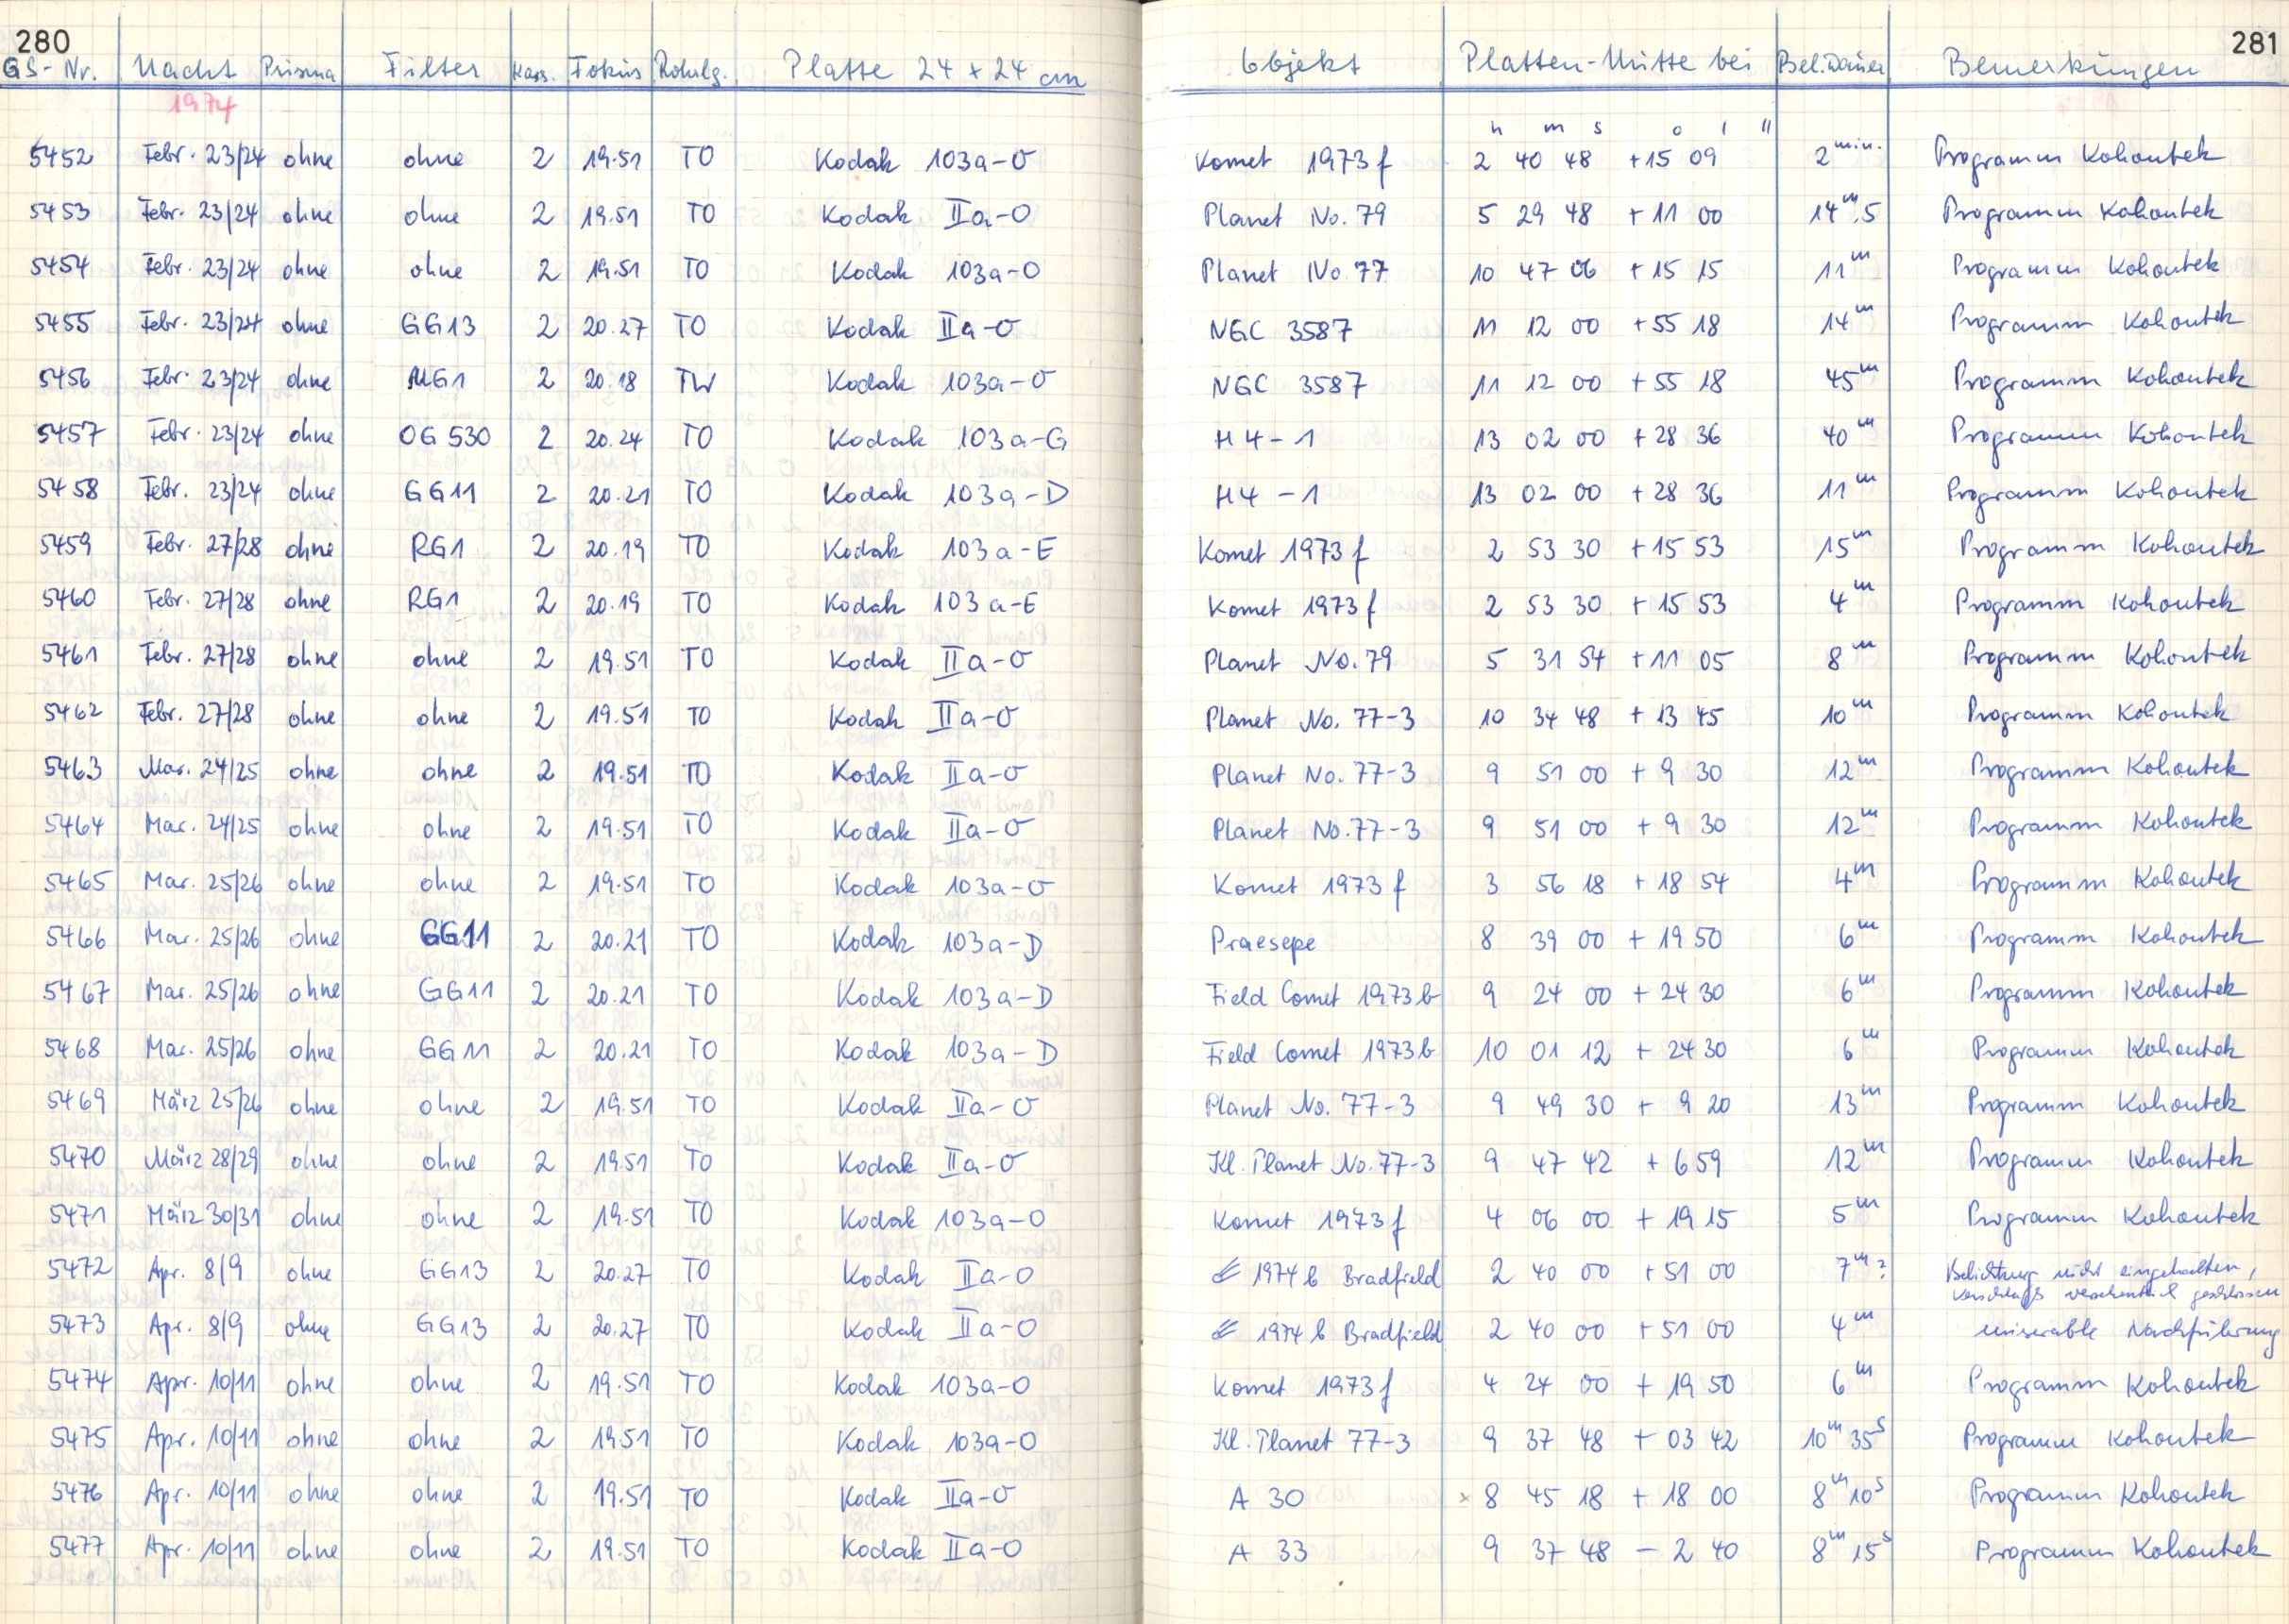 280
281
GS-Nr. Nacht Prisma Filter Kass. Fokus Rohrlg. Platte 24 x 24 cm Objekt Platten-Mitte bei Bel.Dauer Bemerkungen
1974
h m s o ' "
5452 Febr. 23/24 ohne ohne 2 19.51 TO Kodak 103a-O Komet 1973f 2 40 48 +15 09 2 min. Programm Kohoutek
5453 Febr. 23/24 ohne ohne 2 19.51 TO Kodak IIa-O Planet No. 79 5 29 48 +11 00 14m.5 Programm Kohoutek
5454 Febr. 23/24 ohne ohne 2 19.51 TO Kodak 103a-O Planet No. 77 10 47 06 +15 15 11m Programm Kohoutek
5455 Febr. 23/24 ohne GG13 2 20.27 TO Kodak IIa-O NGC 3587 11 12 00 +55 18 14m Programm Kohoutek
5456 Febr. 23/24 ohne UG1 2 20.18 TW Kodak 103a-O NGC 3587 11 12 00 +55 18 45m Programm Kohoutek
5457 Febr. 23/24 ohne OG 530 2 20.24 TO Kodak 103a-G H4-1 13 02 00 +28 36 40m Programm Kohoutek
5458 Febr. 23/24 ohne GG11 2 20.21 TO Kodak 103a-D H4-1 13 02 00 +28 36 11m Programm Kohoutek
5459 Febr. 27/28 ohne RG1 2 20.19 TO Kodak 103a-E Komet 1973f 2 53 30 +15 53 15m Programm Kohoutek
5460 Febr. 27/28 ohne RG1 2 20.19 TO Kodak 103a-E Komet 1973f 2 53 30 +15 53 4m Programm Kohoutek
5461 Febr. 27/28 ohne ohne 2 19.51 TO Kodak IIa-O Planet No. 79 5 31 54 +11 05 8m Programm Kohoutek
5462 Febr. 27/28 ohne ohne 2 19.51 TO Kodak IIa-O Planet No. 77-3 10 34 48 +13 45 10m Programm Kohoutek
5463 Mar. 24/25 ohne ohne 2 19.51 TO Kodak IIa-O Planet No. 77-3 9 51 00 +9 30 12m Programm Kohoutek
5464 Mar. 24/25 ohne ohne 2 19.51 TO Kodak IIa-O Planet No. 77-3 9 51 00 +9 30 12m Programm Kohoutek
5465 Mar. 25/26 ohne ohne 2 19.51 TO Kodak 103a-O Komet 1973f 3 56 18 +18 54 4m Programm Kohoutek
5466 Mar. 25/26 ohne GG11 2 20.21 TO Kodak 103a-D Praesepe 8 39 00 +19 50 6m Programm Kohoutek
5467 Mar. 25/26 ohne GG11 2 20.21 TO Kodak 103a-D Field Comet 1973b 9 24 00 +24 30 6m Programm Kohoutek
5468 Mar. 25/26 ohne GG11 2 20.21 TO Kodak 103a-D Field Comet 1973b 10 01 12 +24 30 6m Programm Kohoutek
5469 März 25/26 ohne ohne 2 19.51 TO Kodak IIa-O Planet No. 77-3 9 49 30 +9 20 13m Programm Kohoutek
5470 März 28/29 ohne ohne 2 19.51 TO Kodak IIa-O Kl. Planet No. 77-3 9 47 42 +6 59 12m Programm Kohoutek
5471 März 30/31 ohne ohne 2 19.51 TO Kodak 103a-O Komet 1973f 4 06 00 +19 15 5m Programm Kohoutek
5472 Apr. 8/9 ohne GG13 2 20.27 TO Kodak IIa-O 1974b Bradfield 2 40 00 +51 00 7m? Belichtung nicht eingehalten,
Verschluß versehentlich geschlossen
5473 Apr. 8/9 ohne GG13 2 20.27 TO Kodak IIa-O 1974b Bradfield 2 40 00 +51 00 4m miserable Nachführung
5474 Apr. 10/11 ohne ohne 2 19.51 TO Kodak 103a-O Komet 1973f 4 24 00 +19 50 6m Programm Kohoutek
5475 Apr. 10/11 ohne ohne 2 19.51 TO Kodak 103a-O Kl. Planet 77-3 9 37 48 +03 42 10m 35s Programm Kohoutek
5476 Apr. 10/11 ohne ohne 2 19.51 TO Kodak IIa-O A 30 x 8 45 18 +18 00 8m 10s Programm Kohoutek
5477 Apr. 10/11 ohne ohne 2 19.51 TO Kodak IIa-O A 33 9 37 48 -2 40 8m 15s Programm Kohoutek